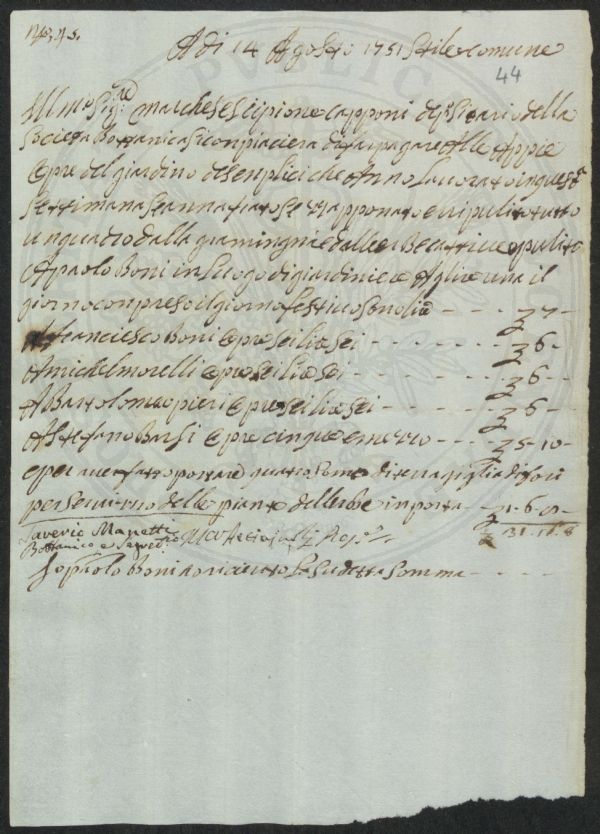 N.o 45.
Adi 14 Agosto 1751 Stile Comune
44
Ill.mo Sig.re Marchese Scipione Capponi depositario della
Società Bottanica Si conpiacierà da far pagare Alle Appie
Opre del giardino de Senplici che Anno Lavorato in questa
Settimana e Anna
un quadro dalla gramingnia e dalle Erbe Cattive e pulito
A paolo Boni in Luogo di giardiniere A Lire una il
giorno conpreso il giorno festivo Sono lire - - - £ 7 - -
A franciesco Boni Opre Sei lire Sei - - - £ 6 - -
A Michel morelli Opre Sei lire Sei - - - £ 6 - -
A Bartolomeo pieri Opre Sei lire Sei - - - £ 6 - -
A Stefano Barsi Opre cinque e mezzo - - - £ 5 - 10 -
e per aver fatto portare quattro Some di terra di fori
per Servizio delle piante dell erbe inporta - - £ 1 - 6 - 8 -
£ 31 - 16 - 8
Saverio Manetti
Bottanico e Segret.rio
Io paolo Boni o ricieuto La Sudetta Somma - - - -
PVBLICO